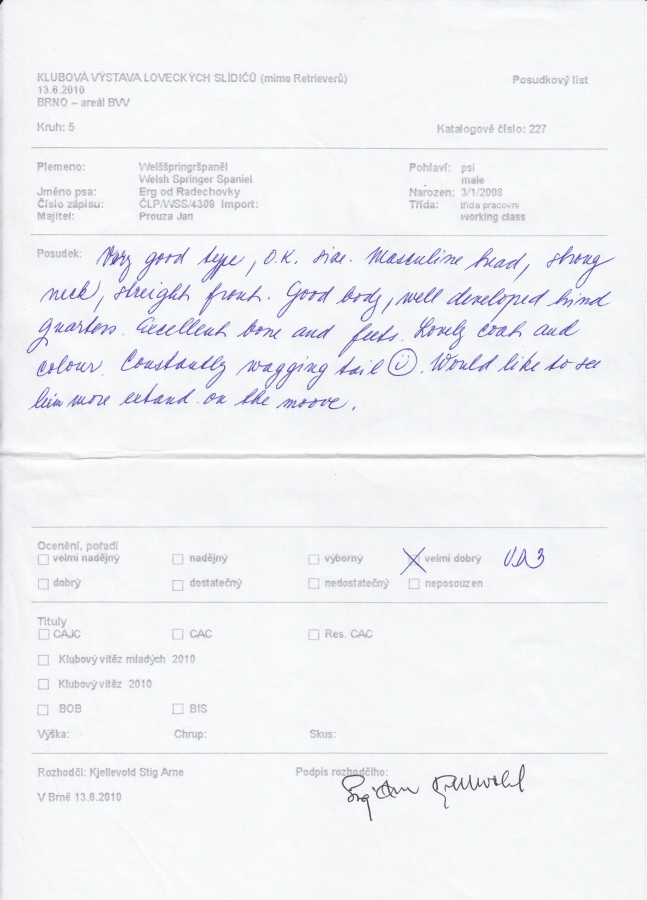 KLUBOVÁ VÝSTAVA LOVECKÝCH SLÍDIČŮ (mimo Retrieverů) Posudkový list
13.6.2010
BRNO – areál BVV
Kruh: 5 Katalogové číslo: 227
Plemeno: Welššpringršpaněl Pohlaví: psi
Welsh Springer Spaniel male
Jméno psa: Erg od Radechovky Narozen: 3/1/2008
Číslo zápisu: ČLP/WSS/4309 Import: Třída: třída pracovní
Majitel: Prouza Jan working class
Posudek: Very good type, O.K. size. Masculine head, strong
neck, streight front. Good body, well developed hind
quarters. Excellent bone and feets. Lovely coat and
colour. Constantly wagging tail ☺. Would like to see
him more extand on the moove.
Ocenění, pořadí
velmi nadějný nadějný výborný velmi dobrý VD3
dobrý dostatečný nedostatečný neposouzen
Tituly
CAJC CAC Res. CAC
Klubový vítěz mladých 2010
Klubový vítěz 2010
BOB BIS
Výška: Chrup: Skus:
Rozhodčí: Kjellevold Stig Arne Podpis rozhodčího:
V Brně 13.6.2010